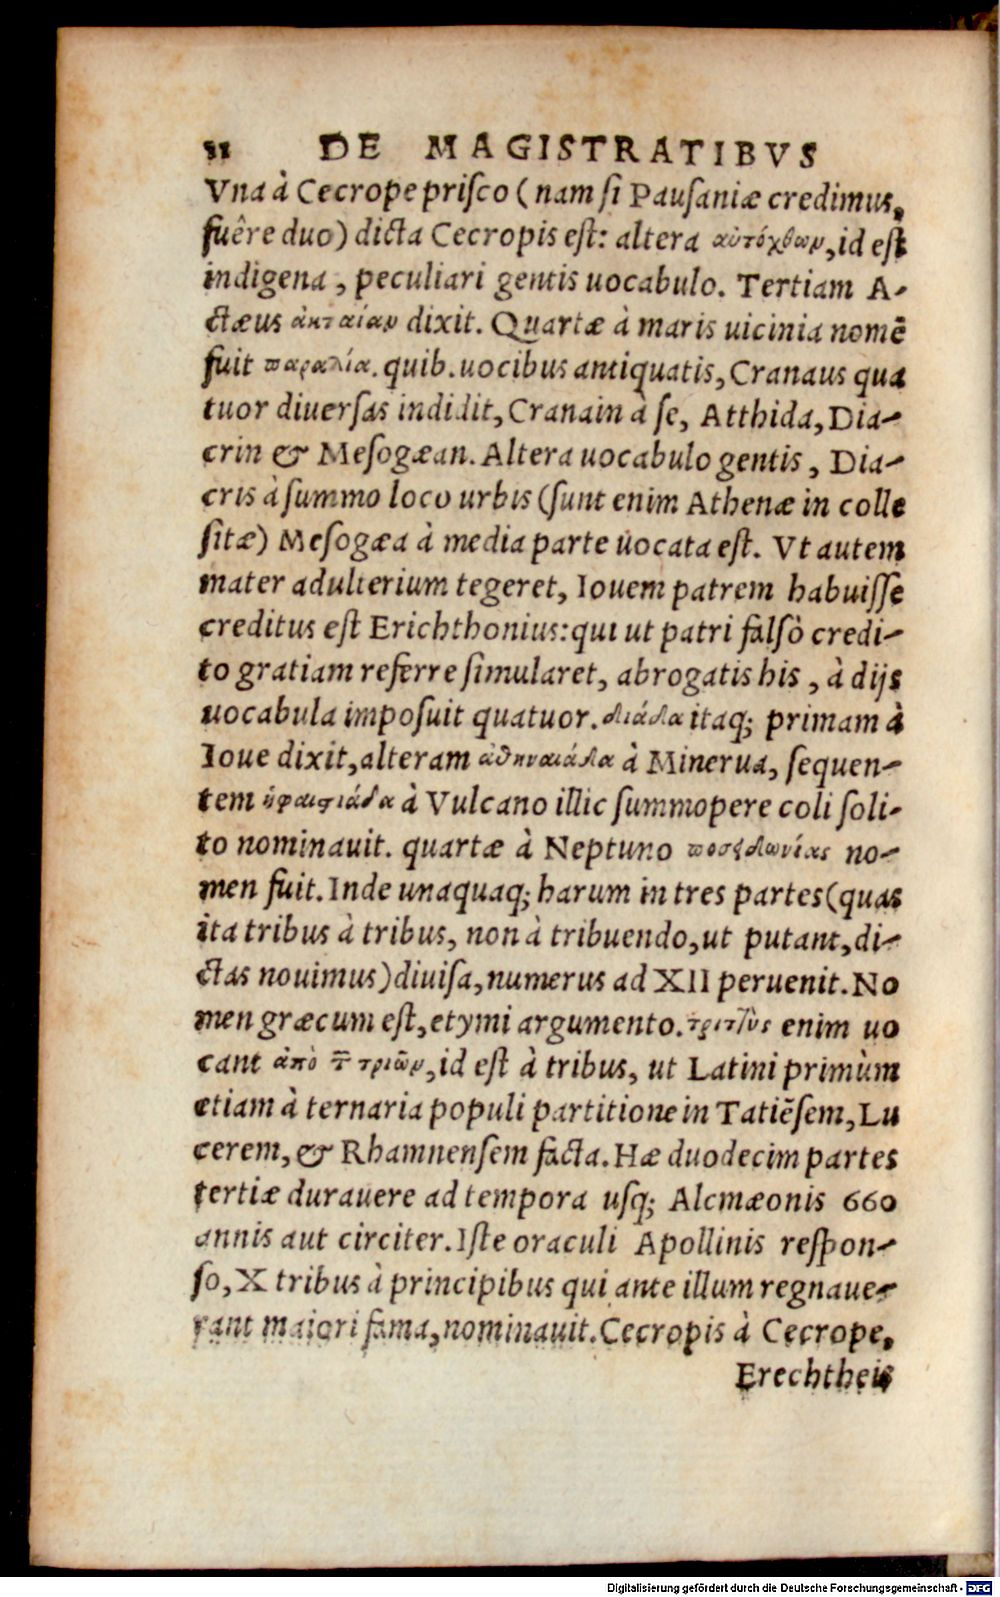 DE MAGISTRATIBVS
Vna à Cecrope prisco (nam si Pausaniæ credimus,
fuêre duo) dicta Cecropis est: altera αὐτόχθων, id est
indigena, peculiari gentis uocabulo. Tertiam A-
ctæus ἀκταίαν dixit. Quartæ à maris uicinia nomē
fuit παραλία. quib. uocibus antiquatis, Cranaus qua
tuor diuersas indidit, Cranain à se, Atthida, Dia-
crin & Mesogæan. Altera uocabulo gentis, Dia-
cris à summo loco urbis (sunt enim Athenæ in colle
sitæ) Mesogæa à media parte uocata est. Vt autem
mater adulterium tegeret, Iouem patrem habuisse
creditus est Erichthonius: qui ut patri falsò credi-
to gratiam referre simularet, abrogatis his, à dijs
uocabula imposuit quatuor. διάδα itaq; primam à
Ioue dixit, alteram ἀθηναιάδα à Minerua, sequen-
tem ἡφαιστιάδα à Vulcano illic summopere coli soli-
to nominauit. quartæ à Neptuno ποσειδωνίας no-
men fuit. Inde unaquaq; harum in tres partes (quas
ita tribus à tribus, non à tribuendo, ut putant, di-
ctas nouimus) diuisa, numerus ad XII peruenit. No
men græcum est, etymi argumento. τριττῦς enim uo
cant ἀπὸ τ̄ τριῶν, id est à tribus, ut Latini primùm
etiam à ternaria populi partitione in Tatiēsem, Lu
cerem, & Rhamnensem facta. Hæ duodecim partes
tertiæ durauere ad tempora usq; Alcmæonis 660
annis aut circiter. Iste oraculi Apollinis respon-
so, X tribus à principibus qui ante illum regnaue-
rant maiori fama, nominauit. Cecropis à Cecrope,
Erechtheis
Digitalisierung gefördert durch die Deutsche Forschungsgemeinschaft - DFG